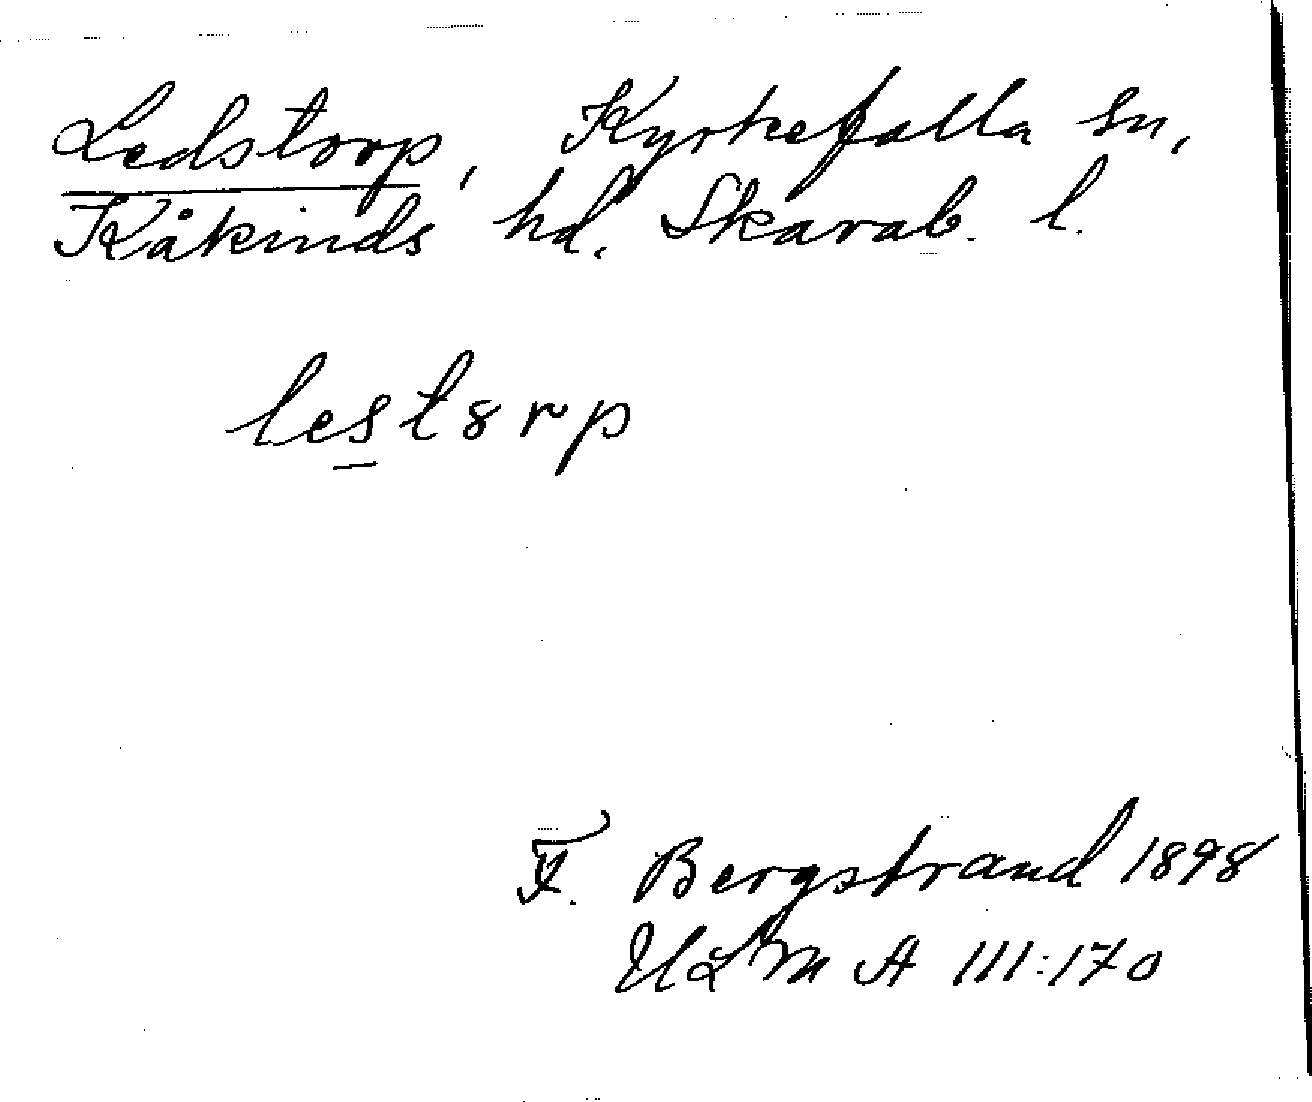 Ledstorp, Kyrkefalla sn,
Kåkinds hd. Skarab. l.
lestorp
F. Bergstrand 1898
ULMA 111:170